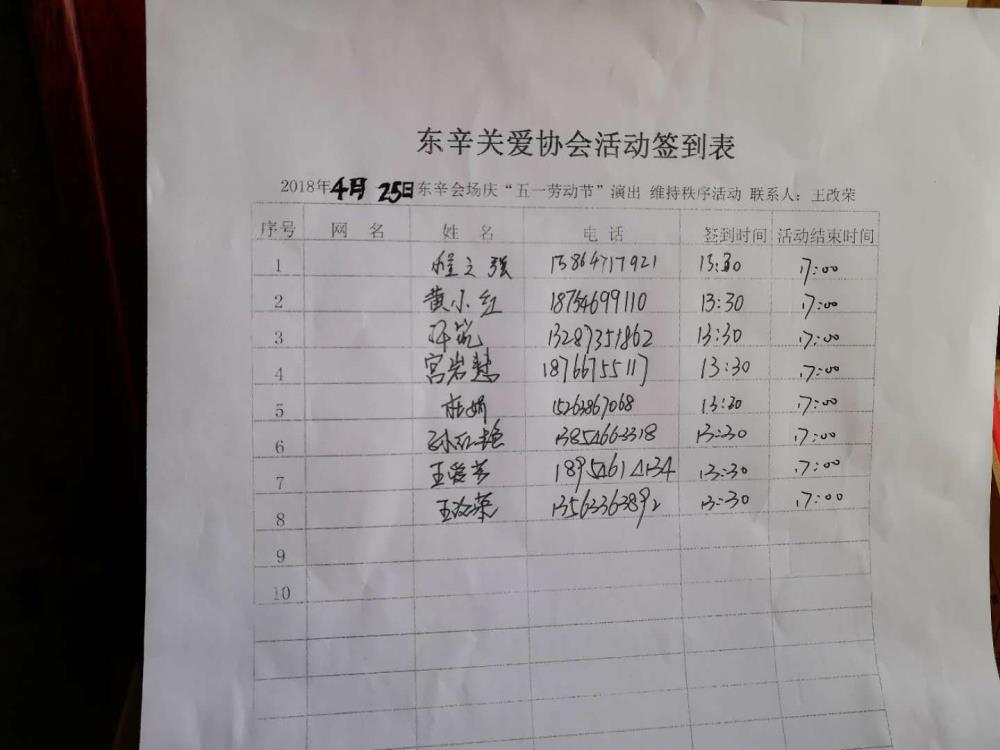 东辛关爱协会活动签到表
2018年4月25日东辛会场庆“五一劳动节”演出 维持秩序活动 联系人：王改荣
序号 网 名 姓 名 电 话 签到时间 活动结束时间
1 程之强 13864717921 13:30 17:00
2 黄小红 18754699110 13:30 17:00
3 13287351862 13:30 17:00
4 宫岩慧 18766755117 13:30 17:00
5 娟 15263867068 13:30 17:00
6 孙红艳 13854663318 13:30 17:00
7 王爱芳 18954614134 13:30 17:00
8 王改荣 13563363892 13:30 17:00
9
10